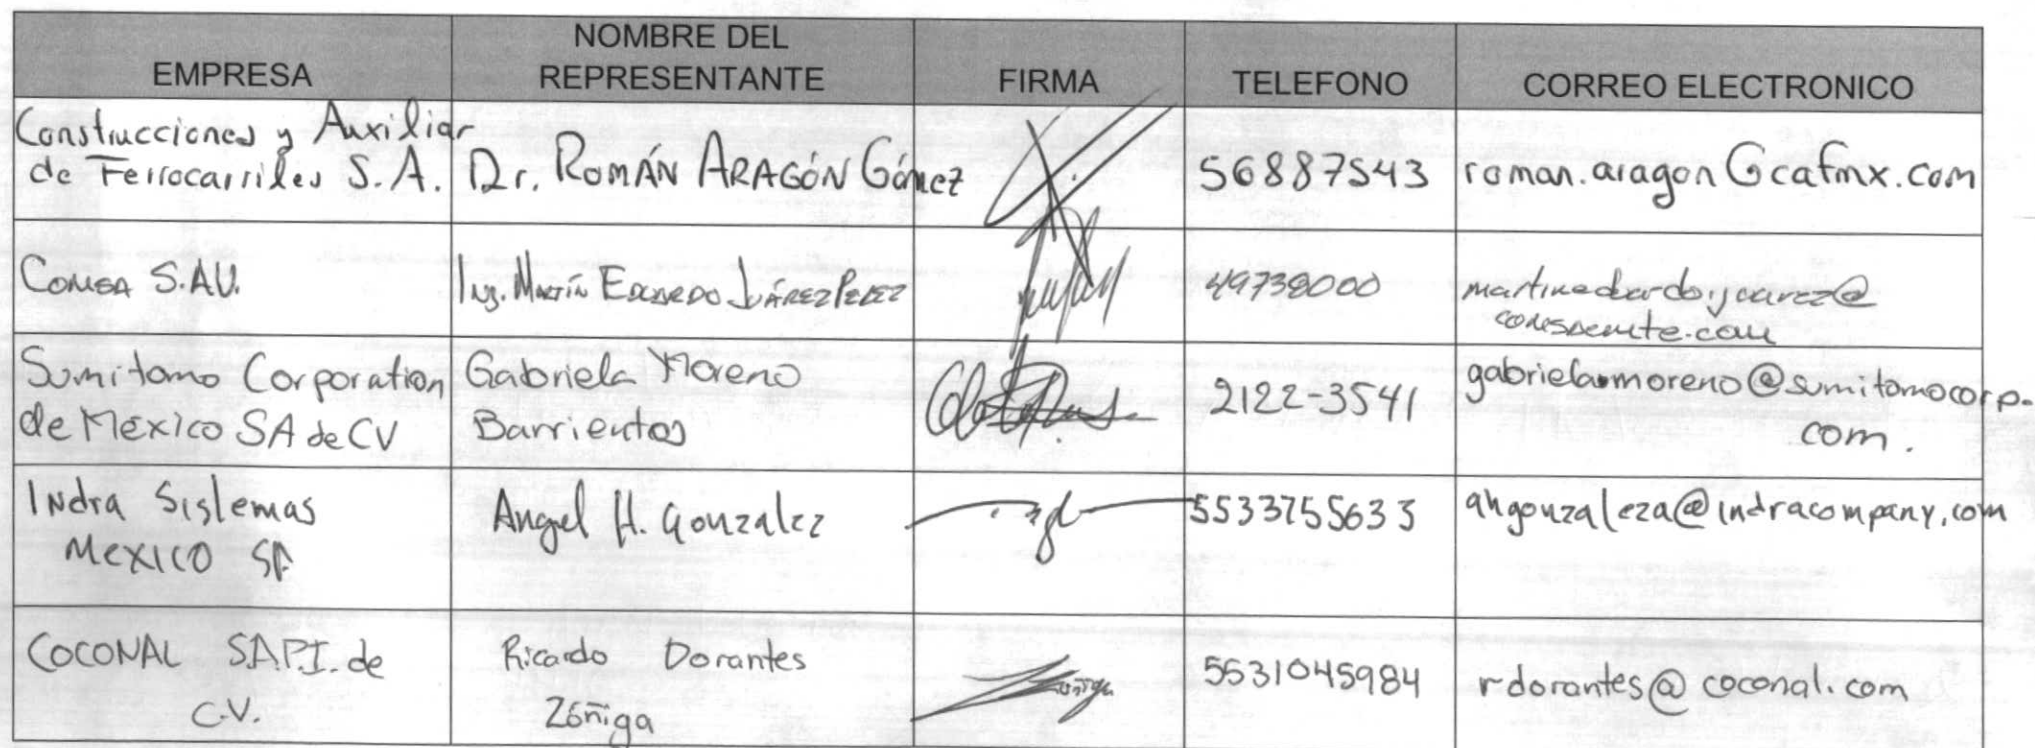 EMPRESA
NOMBRE DEL
REPRESENTANTE
FIRMA
TELEFONO
CORREO ELECTRONICO
Construcciones y Auxiliar
de Ferrocarriles S.A.
Dr. ROMÁN ARAGÓN Gómez
56887543
roman.aragon@cafmx.com
COMSA S.AU.
Ing. MARTÍN EDUARDO JUÁREZ PEREZ
49738000
martineduardo.juarez@
Sumitomo Corporation
de México SA de CV
Gabriela Moreno
Barrientos
2122-3541
gabriela.moreno@sumitomocorp.
com.
Indra Sistemas
MEXICO SA
Angel H. Gonzalez
5533755633
ahgonzaleza@indracompany.com
COCONAL S.A.P.I. de
C.V.
Ricardo Dorantes
Zúñiga
5531045984
rdorantes@coconal.com